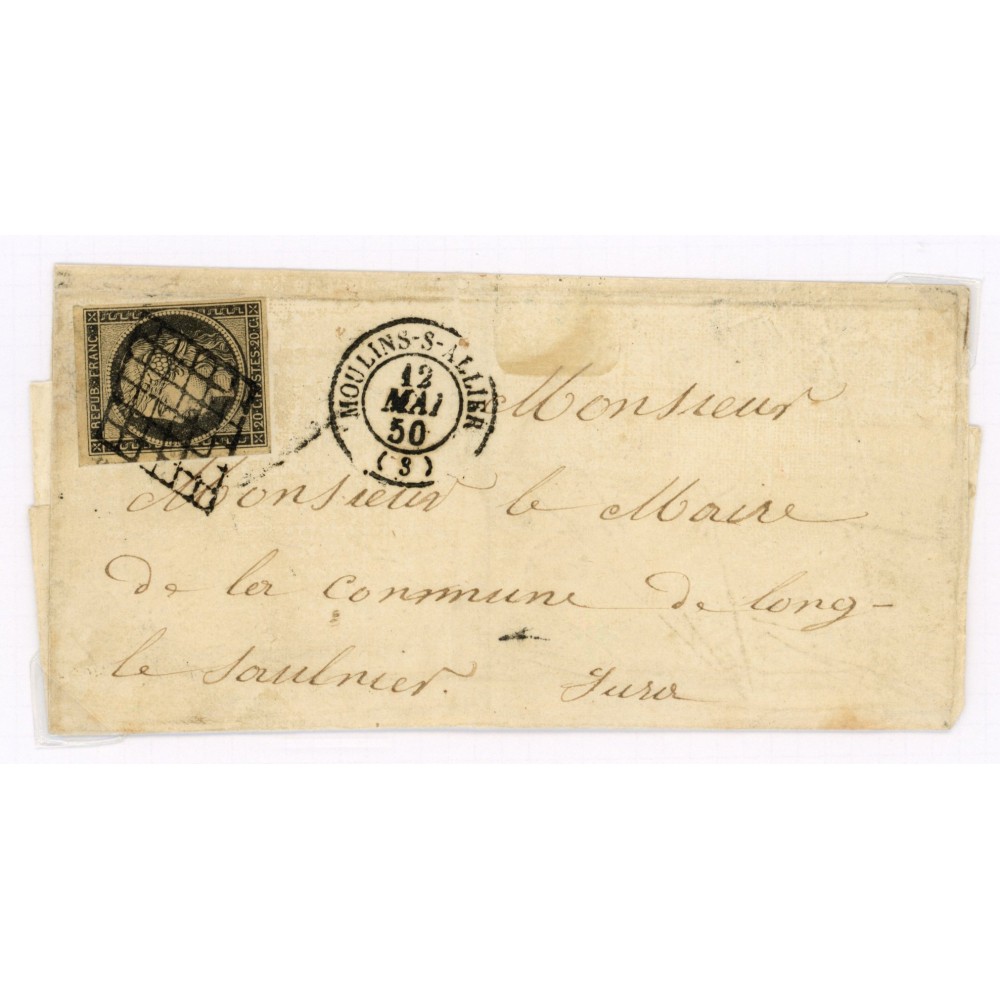 REPUB. FRANC.
20·C. POSTES·20·C.
MOULINS-S-ALLIER
12
MAI
50
(3)
Monsieur
Monsieur le Maire
de la commune de long-
le Saulnier. Jura